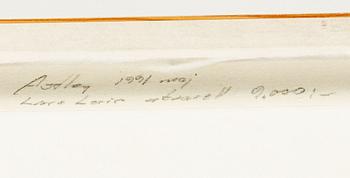 1991 maj
Lars Lerin akvarell 9.000:-